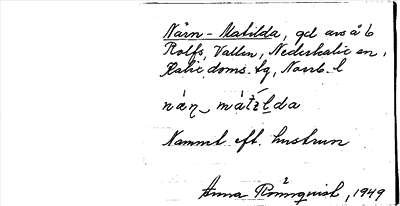 Närn-Matilda, gd avs å b
Rolfs, Vallen, Nederkalix sn,
Kalix doms. tg, Norrb. l
nán mátilda
Namnet eft. hustrun
Anna Rönnqvist, 1949